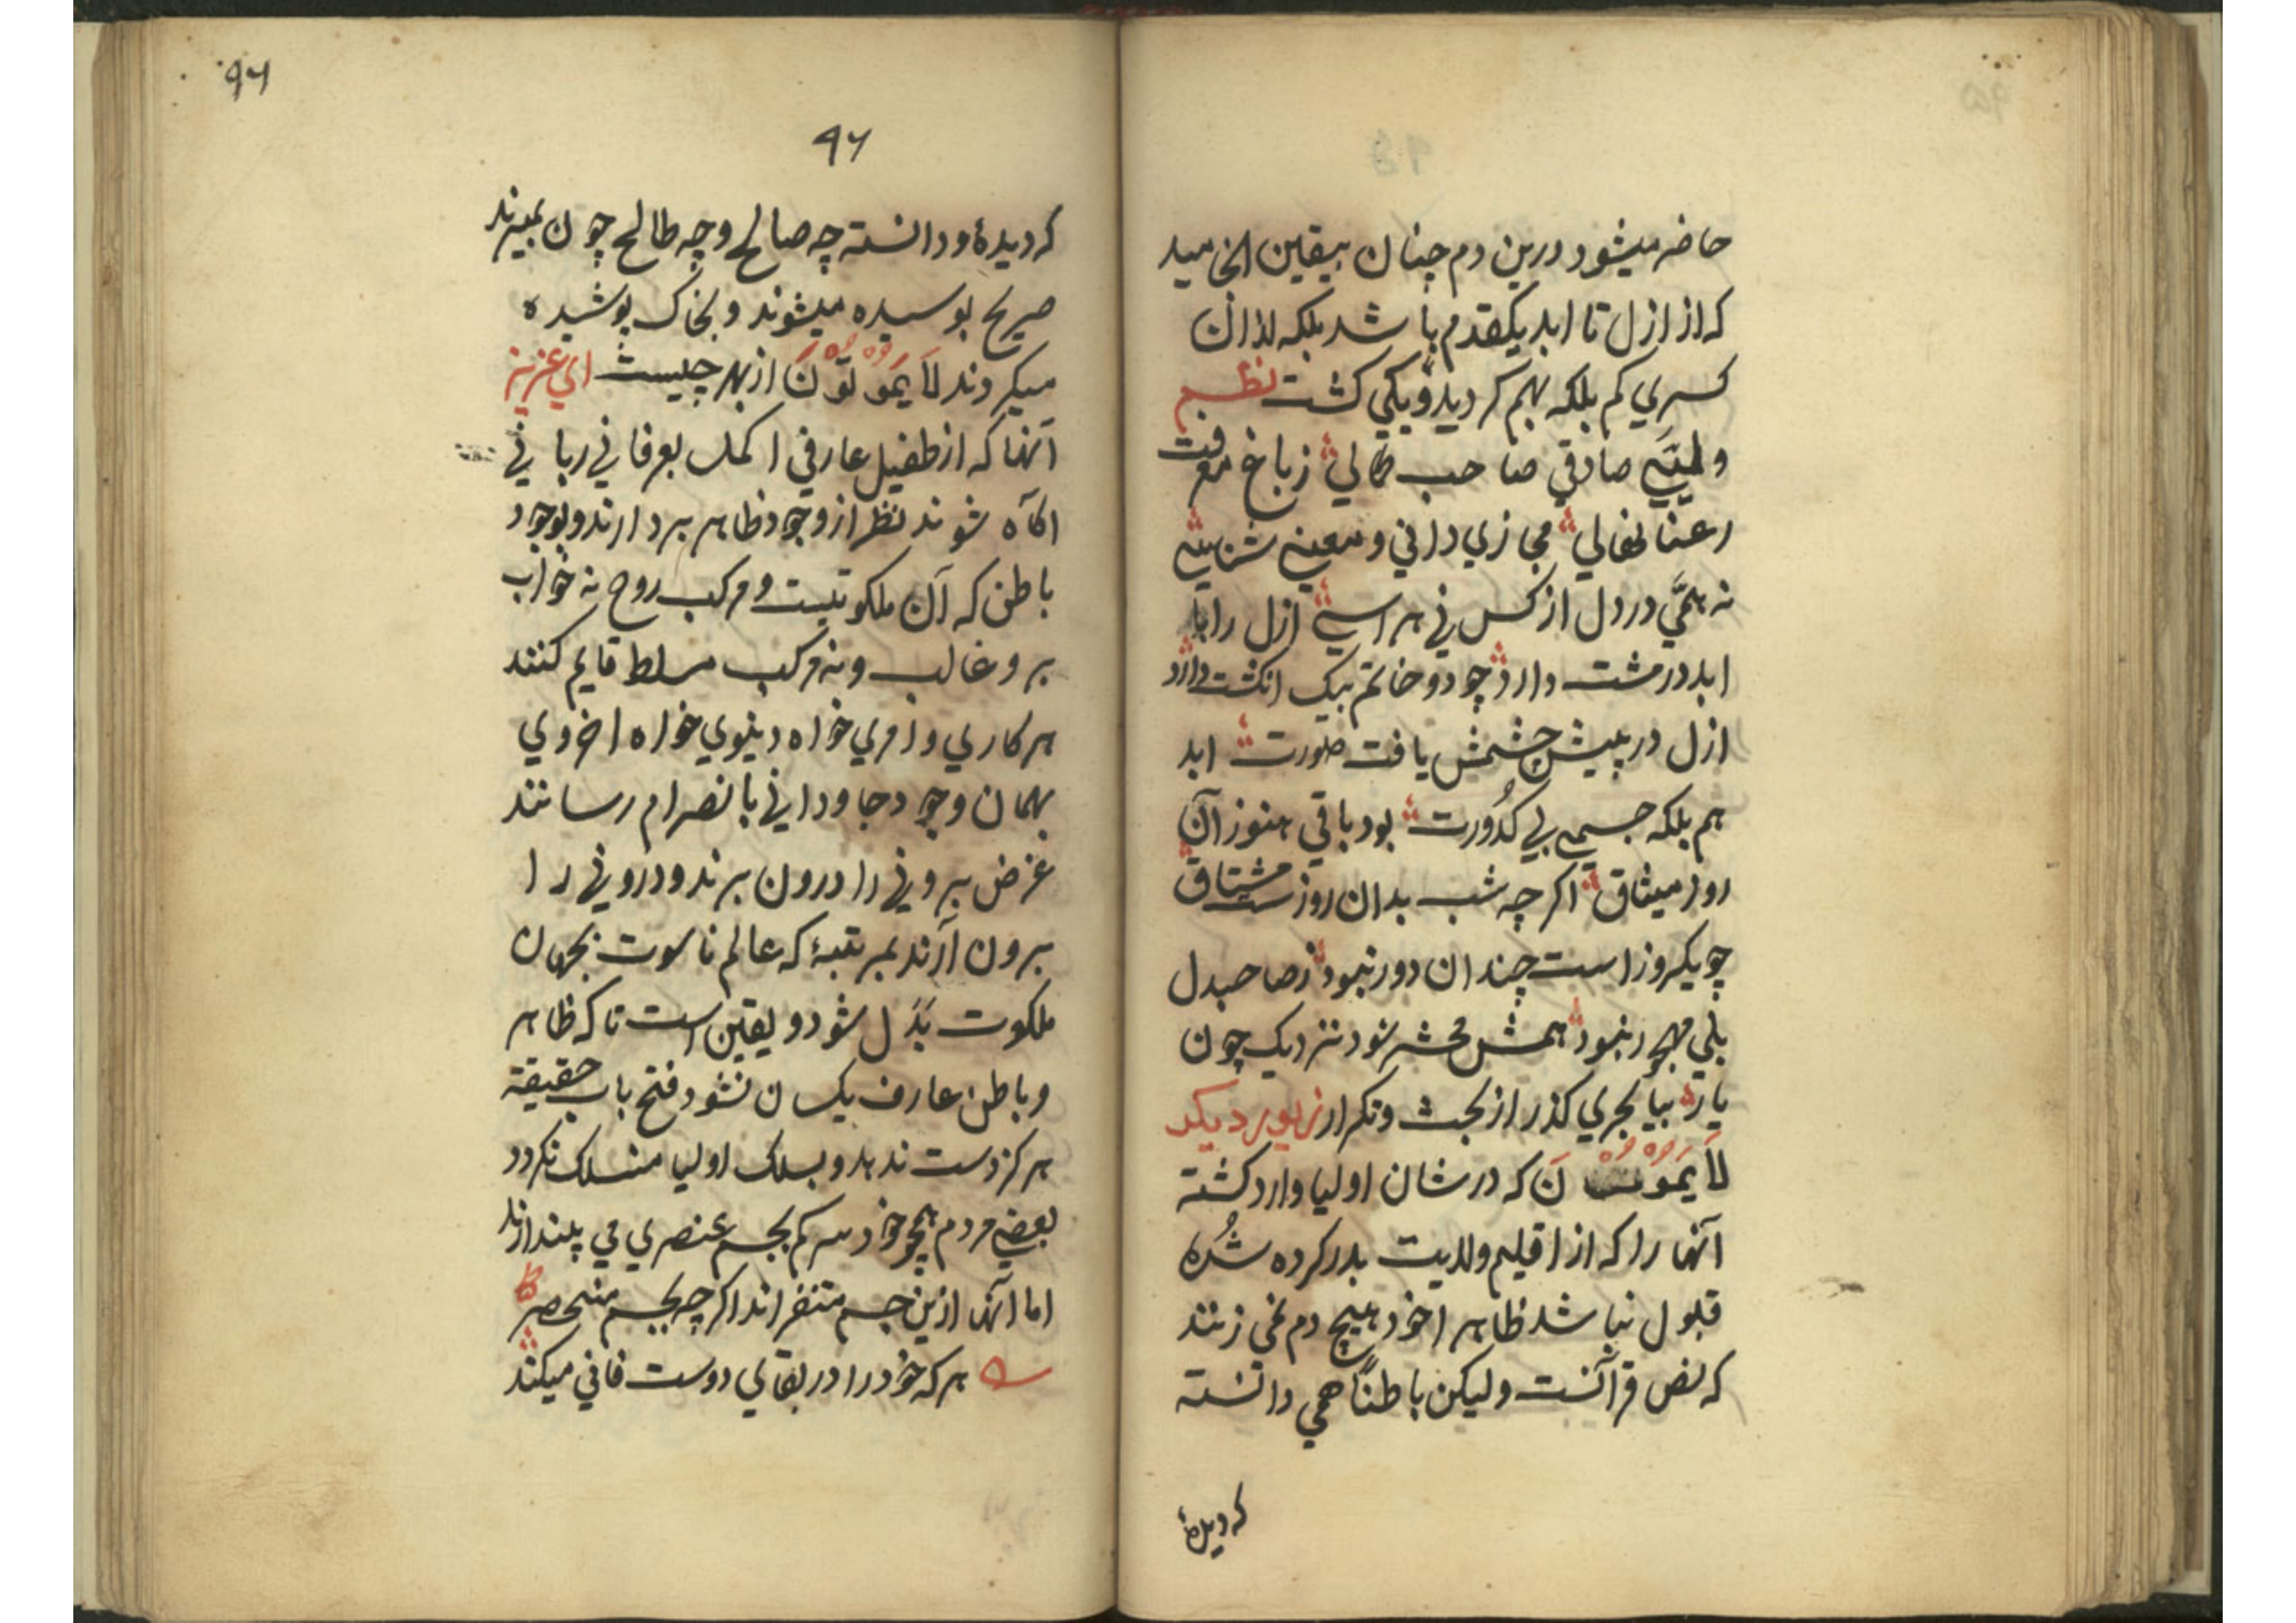 حاضر میشود درین دم چنان بیقین انجامید
که از ازل تا ابد یکقدم باشد بلکه از ان
کسری کم بلکه بهم کردید و یکی کشت نظم
ولیی صادقی صاحب کمالی ز باغ معرفت
رعنا نهالی مجازی دانی و معنی شناسی
نه همّی در دل از کس نی هراسی ازل را با
ابد در مشت دارد چو دو خاتم بیک انکشت دارد
ازل در پیش چشمش یافت صورت ابد
هم بلکه جسمی بی کدُورت بود باقی هنوز آن
روز میثاق اکر چه شب بدان روزست مشتاق
چو یکروز است چندان دور نبود ز صاحبدل
بلی مهجور نبود همش محشر شود نزدیک چون
یار بیا بحری کذر از بحث و تکرار زیور دیکر
لَا یَمُوْتُوْنَ که در شان اولیا وارد کشته
آنها را که از اقلیم ولایت بدر کرده شُده
قبول نباشد ظاهرا خود هیچ دم نمی زنند
که نص قرآنست ولیکن باطناً همی دانسته
که دیدهٔ
٩٦
٩٦
که دیدهٔ و دانسته چه صالح و چه طالح چون بمیرند
صریح بوسیده میشوند و بخاک پوشیده
میکردند لَا یَمُوْتُوْنَ از بهر چیست ای عزیز
آنها که از طفیل عارفی اکمل بعرفانی ربانی
اکآه شوند نظر از وجود ظاهر بردارند و بوجود
باطن که آن ملکوتیست و مرکب روح نه خواب
برو غالب و نه مرکب مسلط قایم کنند
هر کاری و امری خواه دینوی خواه اخروی
بهمان وجود جاودانی بانصرام رسانند
غرض بیرونی را درون برند و درونی را
بیرون آرند بمرتبهٔ که عالم ناسوت بجهان
ملکوت بَدَل شود و یقین است تا که ظاهر
و باطن عارف یکسان نشود فتح باب حقیقة
هرکز دست ندهد و بسلک اولیا منسلک نکردد
بعضی مردم همچو خود سرکم بجسم عنصری می پندارند
اما آنها ازین جسم متنفر اند اکرچه بجسم منحصر
هر که خود را در بقای دوست فانی میکند